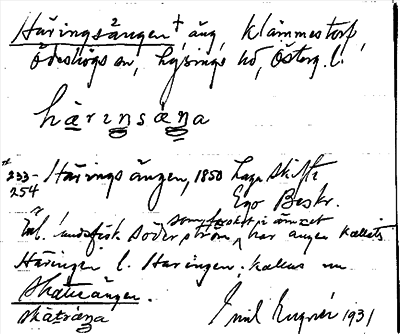 Häringsängen†, äng, Klämmestorp,
Ödeshögs sn, Lysings hd, Österg. l.
härınsäŋa
233-254 Härings ängen, 1850 Laga Skifte
Ego Beskr.
Enl. landsfisk. Söderström, som forskat i ämnet har ängen kallats
Häringen l. Haringen. Kallas nu
Skäteängen.
skätäŋa
Emil Eugnér 1931